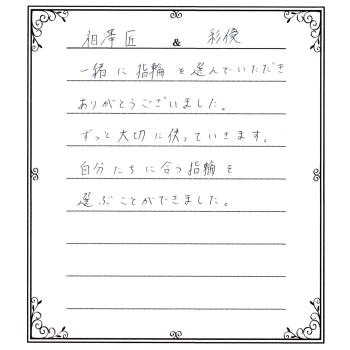 相澤匠 & 彩優
一緒に指輪を選んでいただき
ありがとうございました。
ずっと大切に使っていきます。
自分たちに合う指輪を
選ぶことができました。